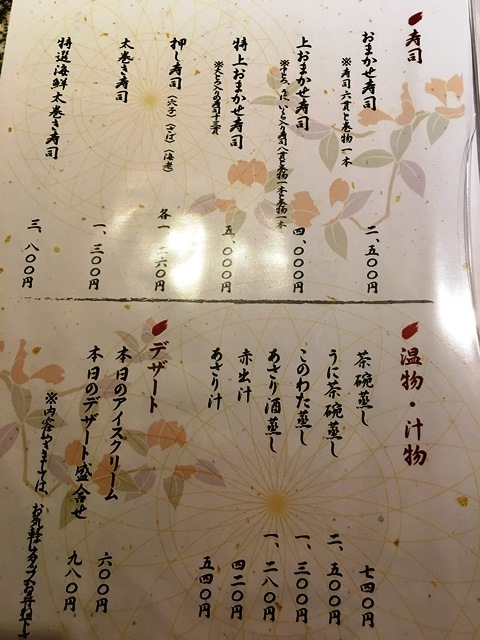 寿司
おまかせ寿司
※寿司六貫と巻物一本
二、五〇〇円
上おまかせ寿司
※中とろ、うに、いくら入り寿司八貫と巻物一本
四、〇〇〇円
特上おまかせ寿司
五、〇〇〇円
押し寿司(穴子)(さば)(海老)
各一、二六〇円
太巻き寿司
一、三〇〇円
特選海鮮太巻き寿司
三、八〇〇円
温物・汁物
茶碗蒸し
七四〇円
うに茶碗蒸し
二、五〇〇円
このわた蒸し
一、三〇〇円
あさり酒蒸し
一、二八〇円
赤出汁
四二〇円
あさり汁
五四〇円
デザート
本日のアイスクリーム
六〇〇円
本日のデザート盛合せ
九八〇円
※内容につきましては、お気軽にスタッフにお尋ね下